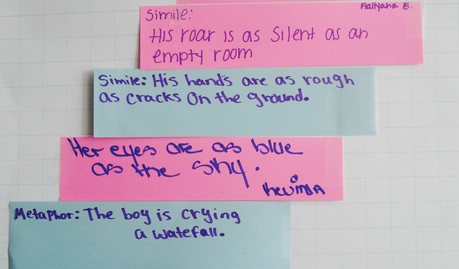 Aaliyana B.
Simile:
His roar is as Silent as an
empty room
Simile: His hands are as rough
as cracks On the ground.
Her eyes are as blue
as the sky.
MetaPhor: The boy is crying
a watefall.